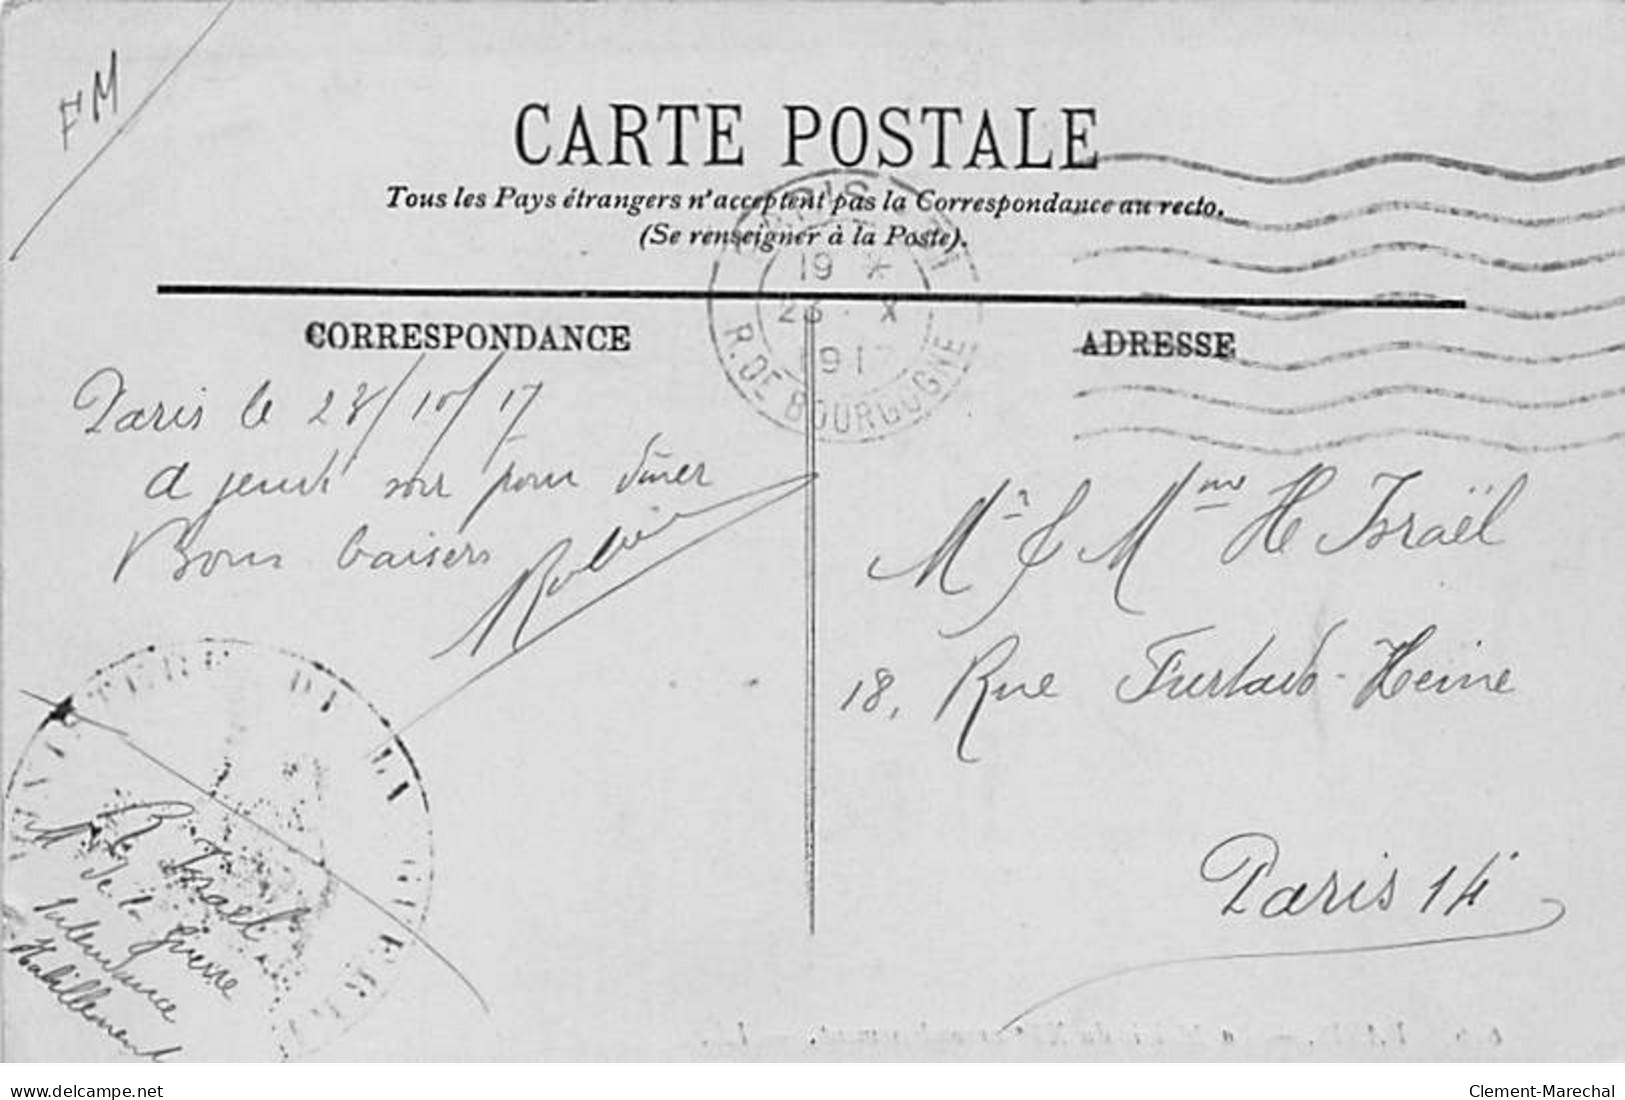 FM
CARTE POSTALE
Tous les Pays étrangers n'acceptent pas la Correspondance au recto.
(Se renseigner à la Poste).
PARIS
19 *
23 X
1917
R. DE BOURGOGNE
CORRESPONDANCE
ADRESSE
Paris le 23/10/17
a jeudi soir pour dîner
Bons baisers
Mr & Mme H Israël
18, Rue Furtado-Heine
Paris 14
R Israël
de la Guerre
Intendance
Habillement
posterlounge.com
delcampe.net
Clement-Marechal